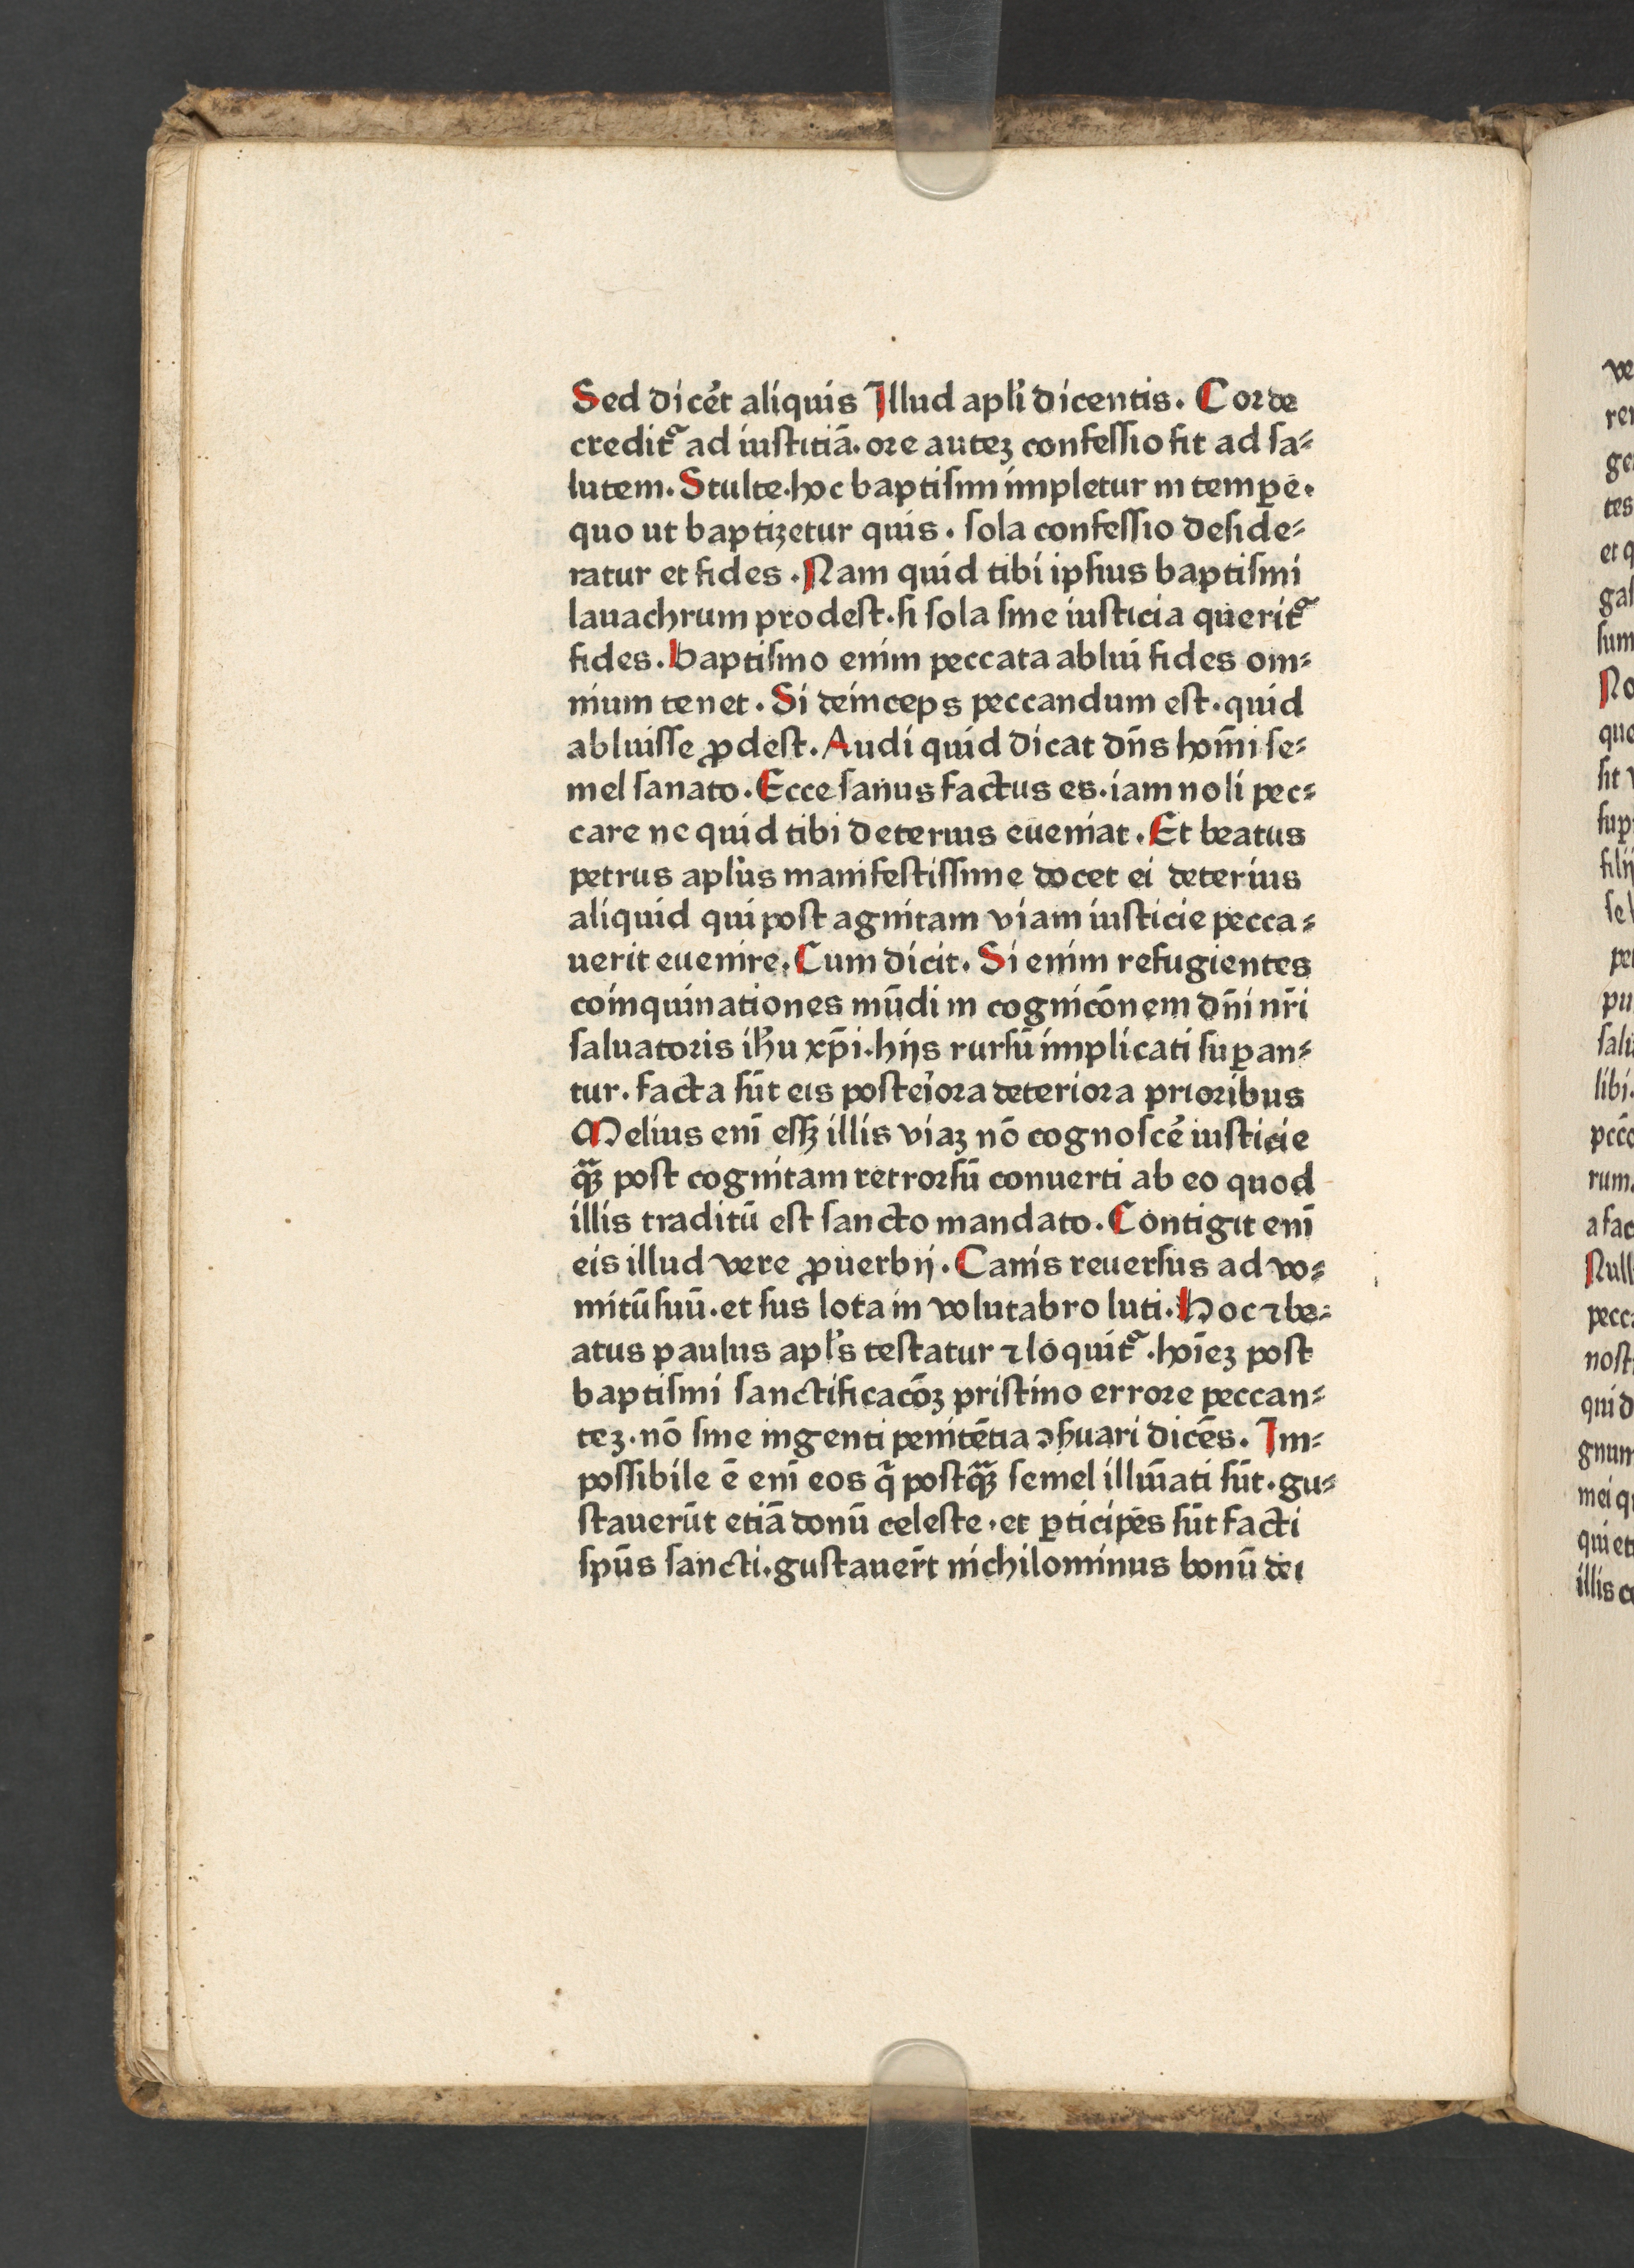 Sed dicēt aliquis Illud apl'i dicentis. Corde
credit᷑ ad iustitiā. ore autez confessio fit ad sa⸗
lutem. Stulte. hoc baptismi impletur in tempꝑe.
quo ut baptizetur quis. sola confessio deside⸗
ratur et fides. Nam quid tibi ipsius baptismi
lauachrum prodest. si sola sine iusticia querit᷑
fides. Baptismo enim peccata ablui fides om⸗
nium tenet. Si deinceps peccandum est. quid
abluisse ꝓdest. Audi quid dicat dn̄s hom̄i se⸗
mel sanato. Ecce sanus factus es. iam noli pec⸗
care ne quid tibi deterius eueniat. Et beatus
petrus apl'us manifestissime docet ei deterius
aliquid qui post agnitam viam iusticie pecca⸗
uerit euenire. Cum dicit. Si enim refugientes
coinquinationes mūdi in cognicōnem dn̄i nr̄i
saluatoris ih'u xp̄i. hijs rursū implicati suꝑan⸗
tur. facta sūt eis posteiora deteriora prioribus
Melius eni᷑ essꝫ illis viaz nō cognoscē iusticie
qꝫ post cognitam retrorsū conuerti ab eo quod
illis traditū est sancto mandato. Contigit enī
eis illud vere ꝓuerbij. Canis reuersus ad vo⸗
mitū suū. et sus lota in volutabro luti. Hoc ⁊ be⸗
atus paulus apl's testatur ⁊ loquit᷑. hoi᷑ez post
baptismi sanctificacōz pristino errore peccan⸗
tez. nō sine ingenti penitētia ↄsuari dicēs. Im⸗
possibile ē enī eos q̄ postqꝫ semel illuīati sūt. gu⸗
stauerūt etiā donū celeste. et ꝑticipes sūt facti
spūs sancti. gustauer̄t nichilominus bonū dei